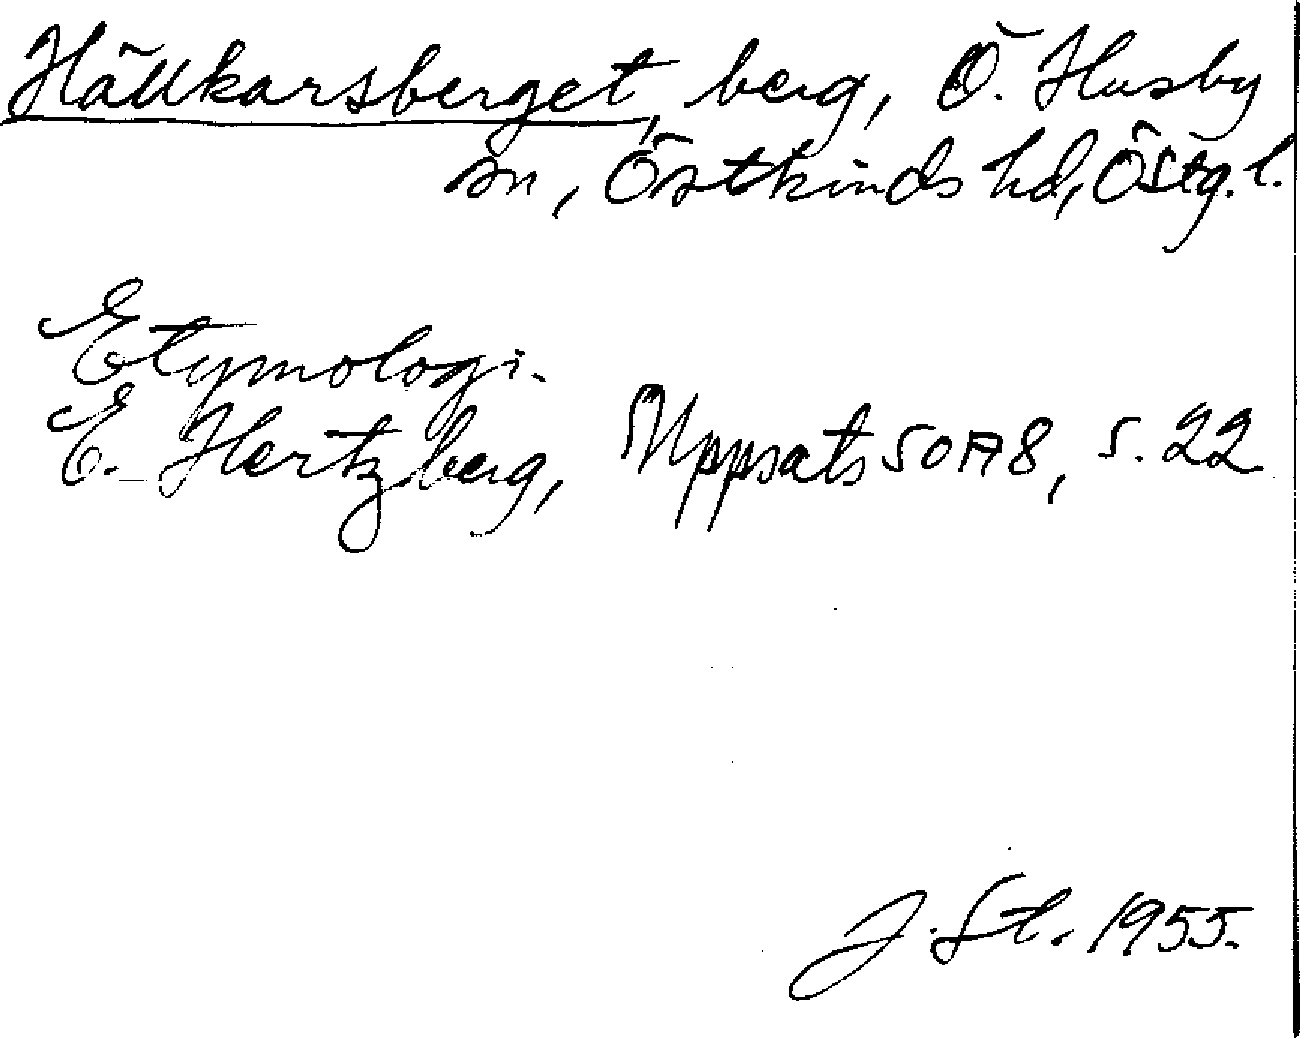 Hällkarsberget, berg, Ö. Husby
sn, Östkinds hd, Östg. l.
Etymologi.
E. Hertzberg, Uppsats SOA8, s. 22
J. St. 1955.